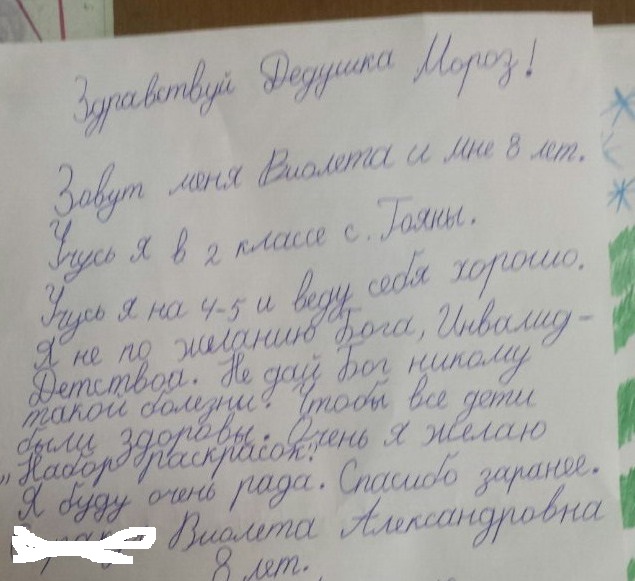 Здравствуй Дедушка Мороз!
Зовут меня Виолета и мне 8 лет.
Учусь я в 2 классе с. Тояны.
Учусь я на 4-5 и веду себя хорошо.
Я не по желанию Бога, Инвалид-
Детства. Не дай Бог никому
такой болезни. Чтобы все дети
были здоровы. Очень я желаю
"Набор раскрасок!
Я буду очень рада. Спасибо заранее.
Виолета Александровна
8 лет.